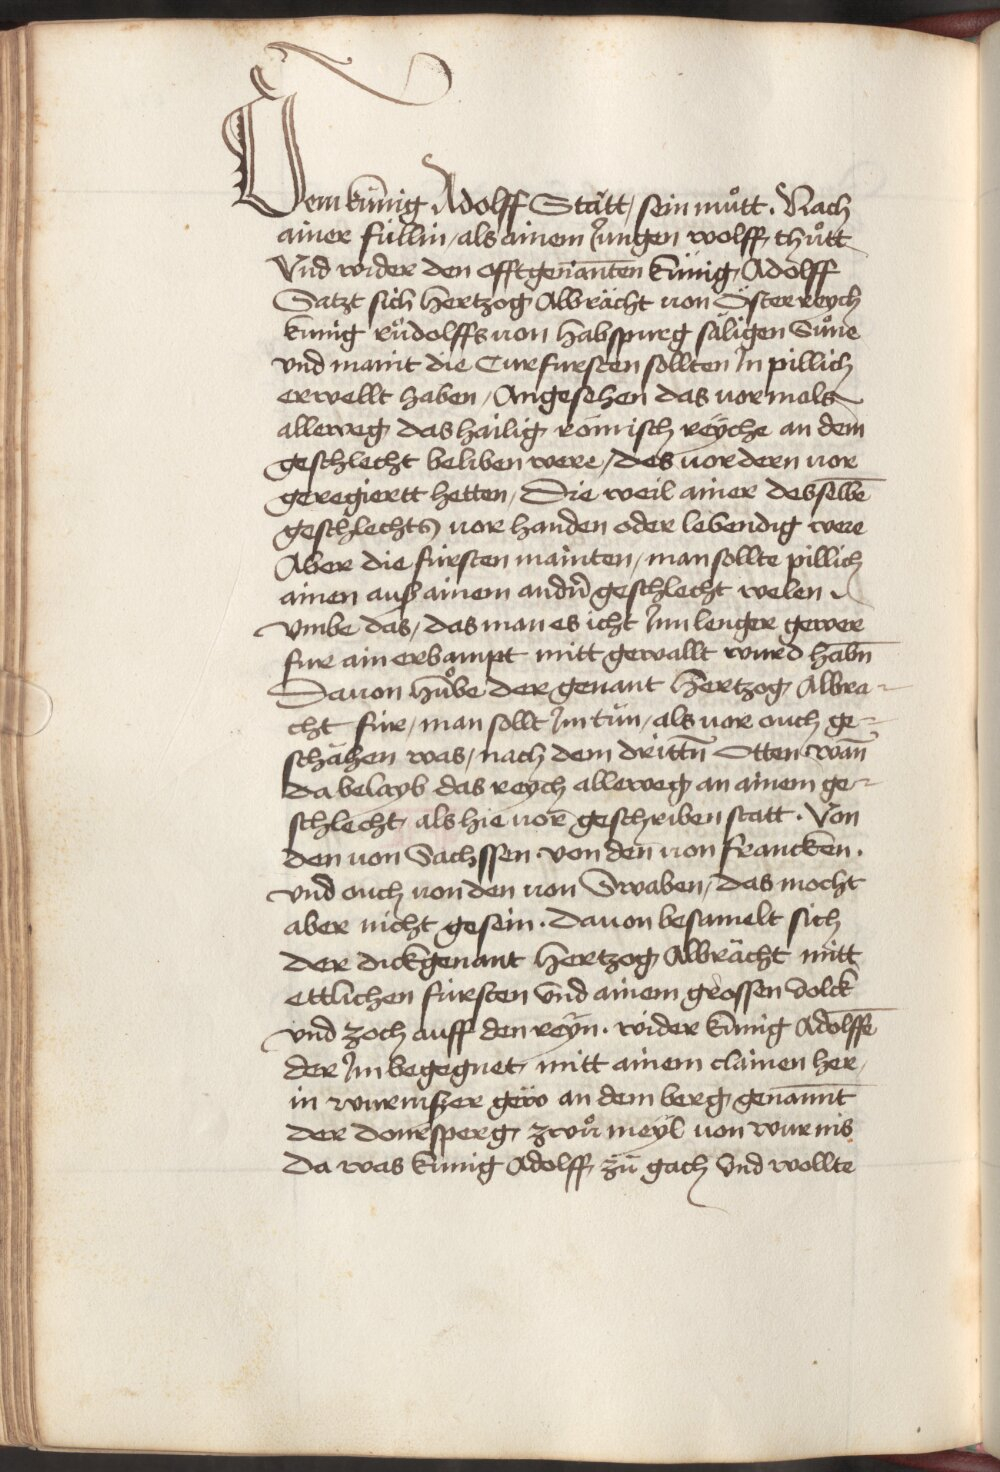 Dem künig Adolff Stätt / sein mut̊t . Nach
ainer füllin / als ainem Jungen wolff / thůtt
Vnd wider den offtgenanten künig Adolff
Satzt sich Hertzog Albrächt von Österreych
künig růdolffs von habspurg säligen Sůne
vnd maint die Curfursten sollten Jn pillich
erwellt haben / Angesehen das vormals
alleweg das hailig römisch reÿche an dem
geschlecht beliben were / des vordern vor
geregiertt hetten / Die weil ainer desselbē
geschlechts vor handen oder lebendig were
Aber die fürsten mainten / man sollte pillich
ainen auß ainem andn̄ geschlecht welen .
vmbe das / das man es icht Jnn lenger gewer
fur ain erbampt mitt gewallt wurd habn̄
Dauon hůbe der genant Hertzog Albra-
cht für / man sollt Jm tün / als vor ouch ge-
schähen was / nach dem drittn̄ Otten wan̄
da belayb das reych alleweg an ainem ge-
schlecht als hie vor geschriben statt . Von
den von Sachssen . von den von francken .
vnd ouch von den von Swaben / das mocht
aber nicht gesein . dauon besamelt sich
der dickgenant Hertzog Albrächt mitt
ettlichen fürsten vnd ainem grossen volck
vnd zoch auff den reÿn . wider künig Adolffē
der Jm begegnet mitt ainem clainen her /
in wurmßer gëw an dem berg genannt
der donrsperg zwů meyl von wurms
da was künig Adolff zü gach vnd wollte